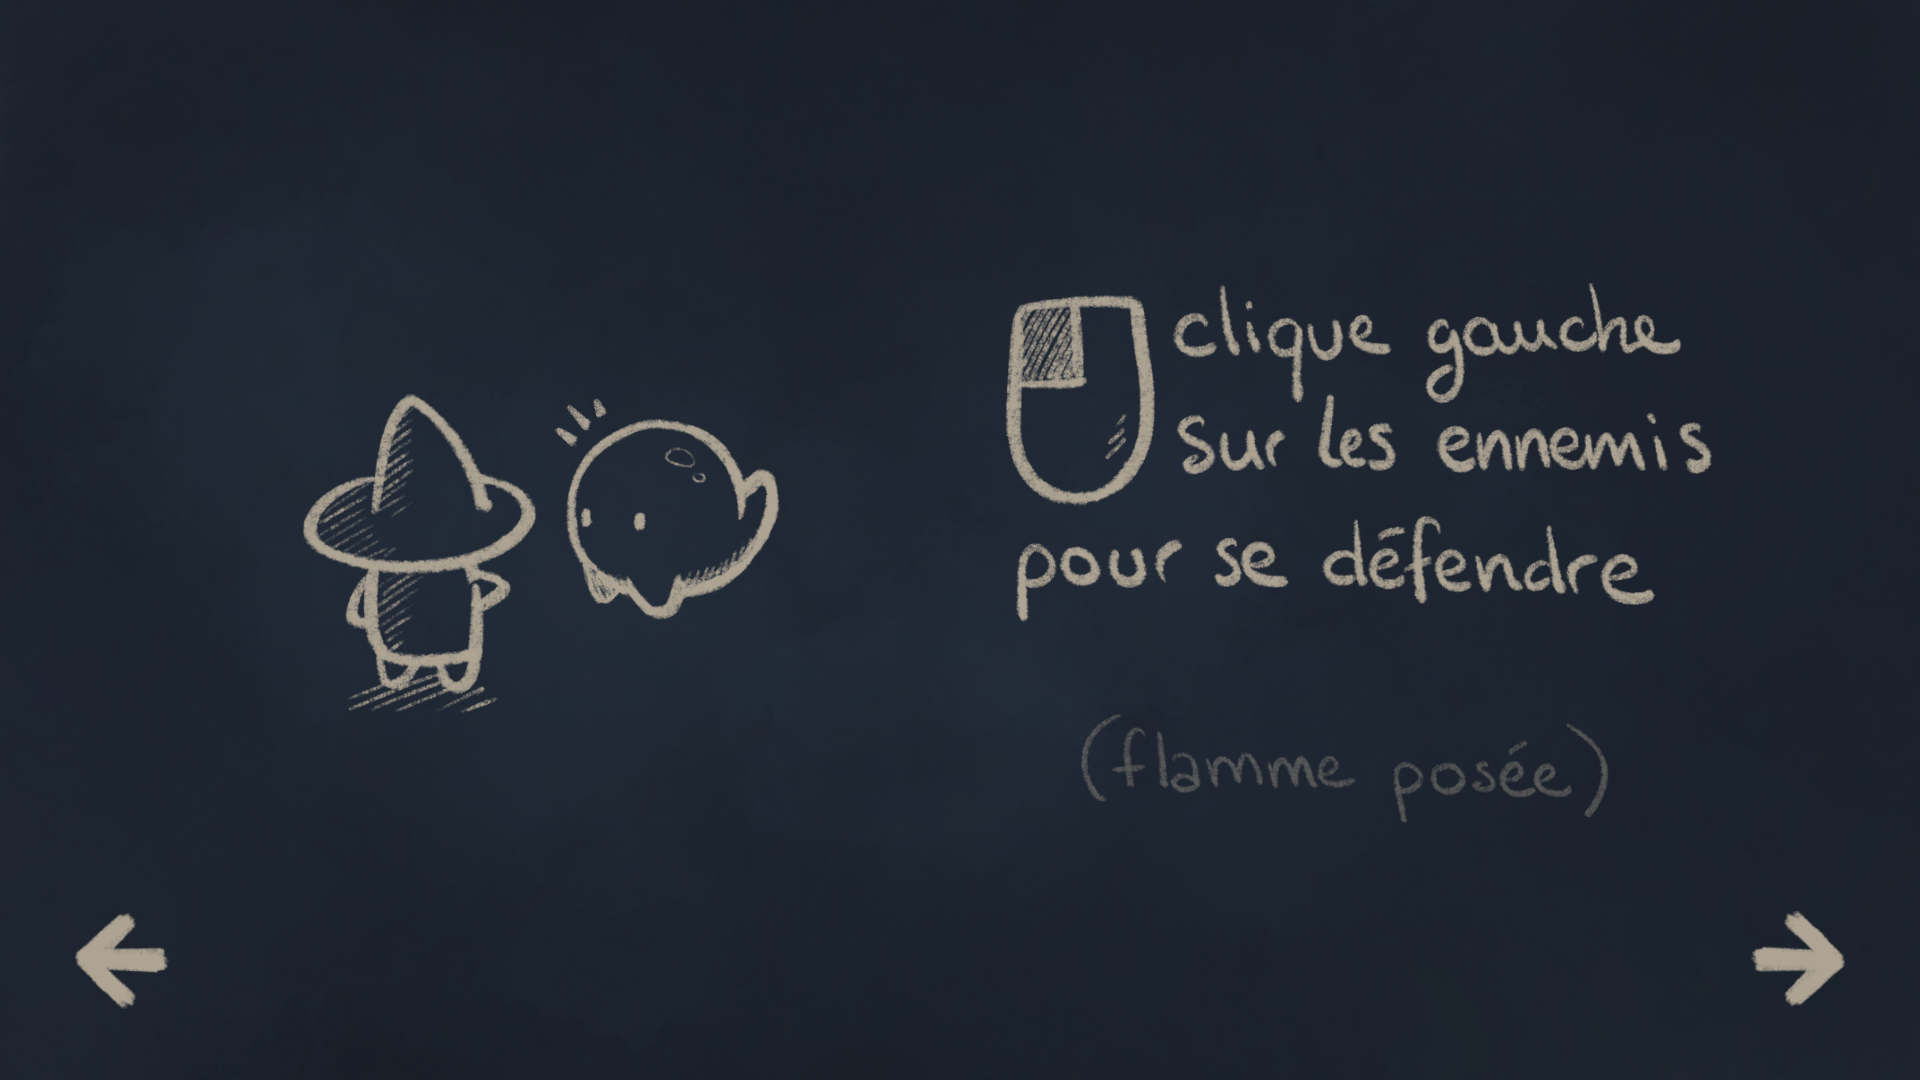 clique gauche
sur les ennemis
pour se défendre
(flamme posée)